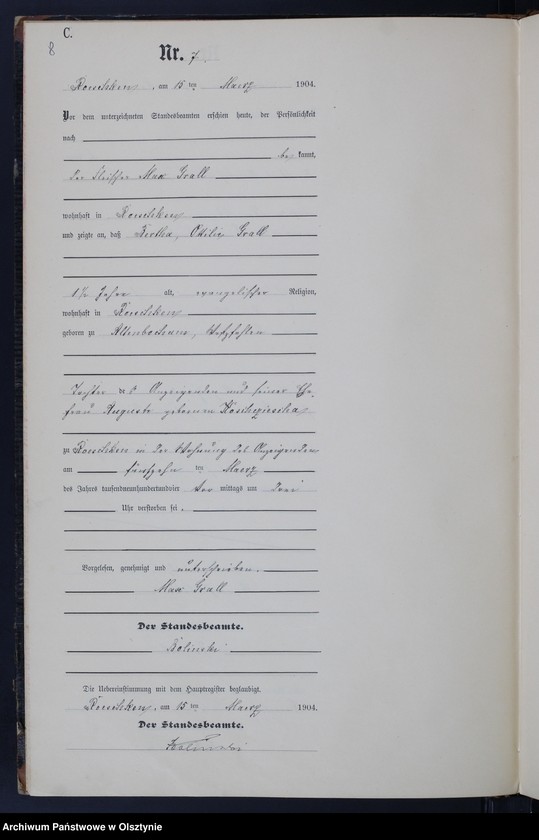 C.
8
Nr. 7.
Roschken, am 15 ten Maerz 1904.
Vor dem unterzeichneten Standesbeamten erschien heute, der Persönlichkeit
nach
be kannt,
der Fleischer Max Grall
wohnhaft in Roschken
und zeigte an, daß Bertha, Ottilie Grall
1½ Jahre alt, evangelischer Religion,
wohnhaft in Roschken
geboren zu Altenbochum, Westfahlen
Tochter des Anzeigenden und seiner Ehe-
frau Auguste geborenen
zu Roschken in der Wohnung des Anzeigenden
am fünfzehn ten Maerz
des Jahres tausendneunhundertundvier Vor mittags um drei
Uhr verstorben sei.
Vorgelesen, genehmigt und unterschrieben.
Max Grall
Der Standesbeamte.
Kolinski
Die Uebereinstimmung mit dem Hauptregister beglaubigt.
Roschken, am 15 ten Maerz 1904.
Der Standesbeamte.
Kolinski
Archiwum Państwowe w Olsztynie